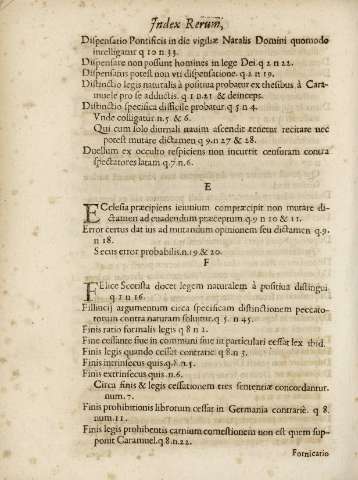 Index Rerum,
Dispensatio Pontificis in die vigiliæ Natalis Domini quomodo
intelligatur q 10 n 33.
Dispensare non possunt homines in lege Dei. q 2 n 22.
Dispensans potest non vti dispensatione. q 2 n 19.
Distinctio legis naturalis à positiua probatur ex thesibus à Cara-
muele pro se adductis. q 1 n 21 & deinceps.
Distinctio specifica difficile probatur. q 5 n 4.
Vnde colligatur n. 5 & 6.
Qui cum solo diurnali nauim ascendit tenetur recitare nec
potest mutare dictamen q 9. n 27 & 28.
Duellum ex occulto respiciens non incurrit censuram contra
spectatores latam q. 7 n. 6.
E
ECclesia præcipiens ieiunium compræcipit non mutare di-
ctamen ad euadendum præceptum. q. 9 n 10 & 11.
Error certus dat ius ad mutandum opinionem seu dictamen q. 9.
n 18.
Secus error probabilis. n. 19 & 20.
F
FElice Scotista docet legem naturalem à positiua distingui.
q 1 n 16.
Fillucij argumentum circa specificam distinctionem peccato-
rum contra naturam soluitur. q 5. n 45.
Finis ratio formalis legis q 8 n 2.
Fine cessante siue in communi siue in particulari cessat lex ibid.
Finis legis quando cessat contrarie q. 8 n 3.
Finis intrinsecus quis. q. 8. n 5.
Finis extrinsecus quis. n. 6.
Circa finis & legis cessationem tres sententiæ concordantur.
num. 7.
Finis prohibitionis librorum cessat in Germania contrariè. q 8.
num. 11.
Finis legis prohibentis carnium comestionem non est quem sup-
ponit Caramuel. q 8. n. 22.
Fornicatio